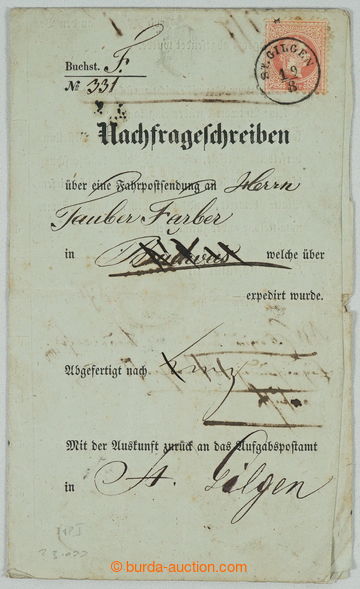 Buchst. F.
ST. GILGEN
19
8
No 331
Nachfrageschreiben
über eine Fahrpostsendung an Herrn
Tauber Farber
in welche über
expedirt wurde.
Abgefertigt nach Linz
Mit der Auskunft zurück an das Aufgabspostamt
in St. Gilgen
© burda-auction.com